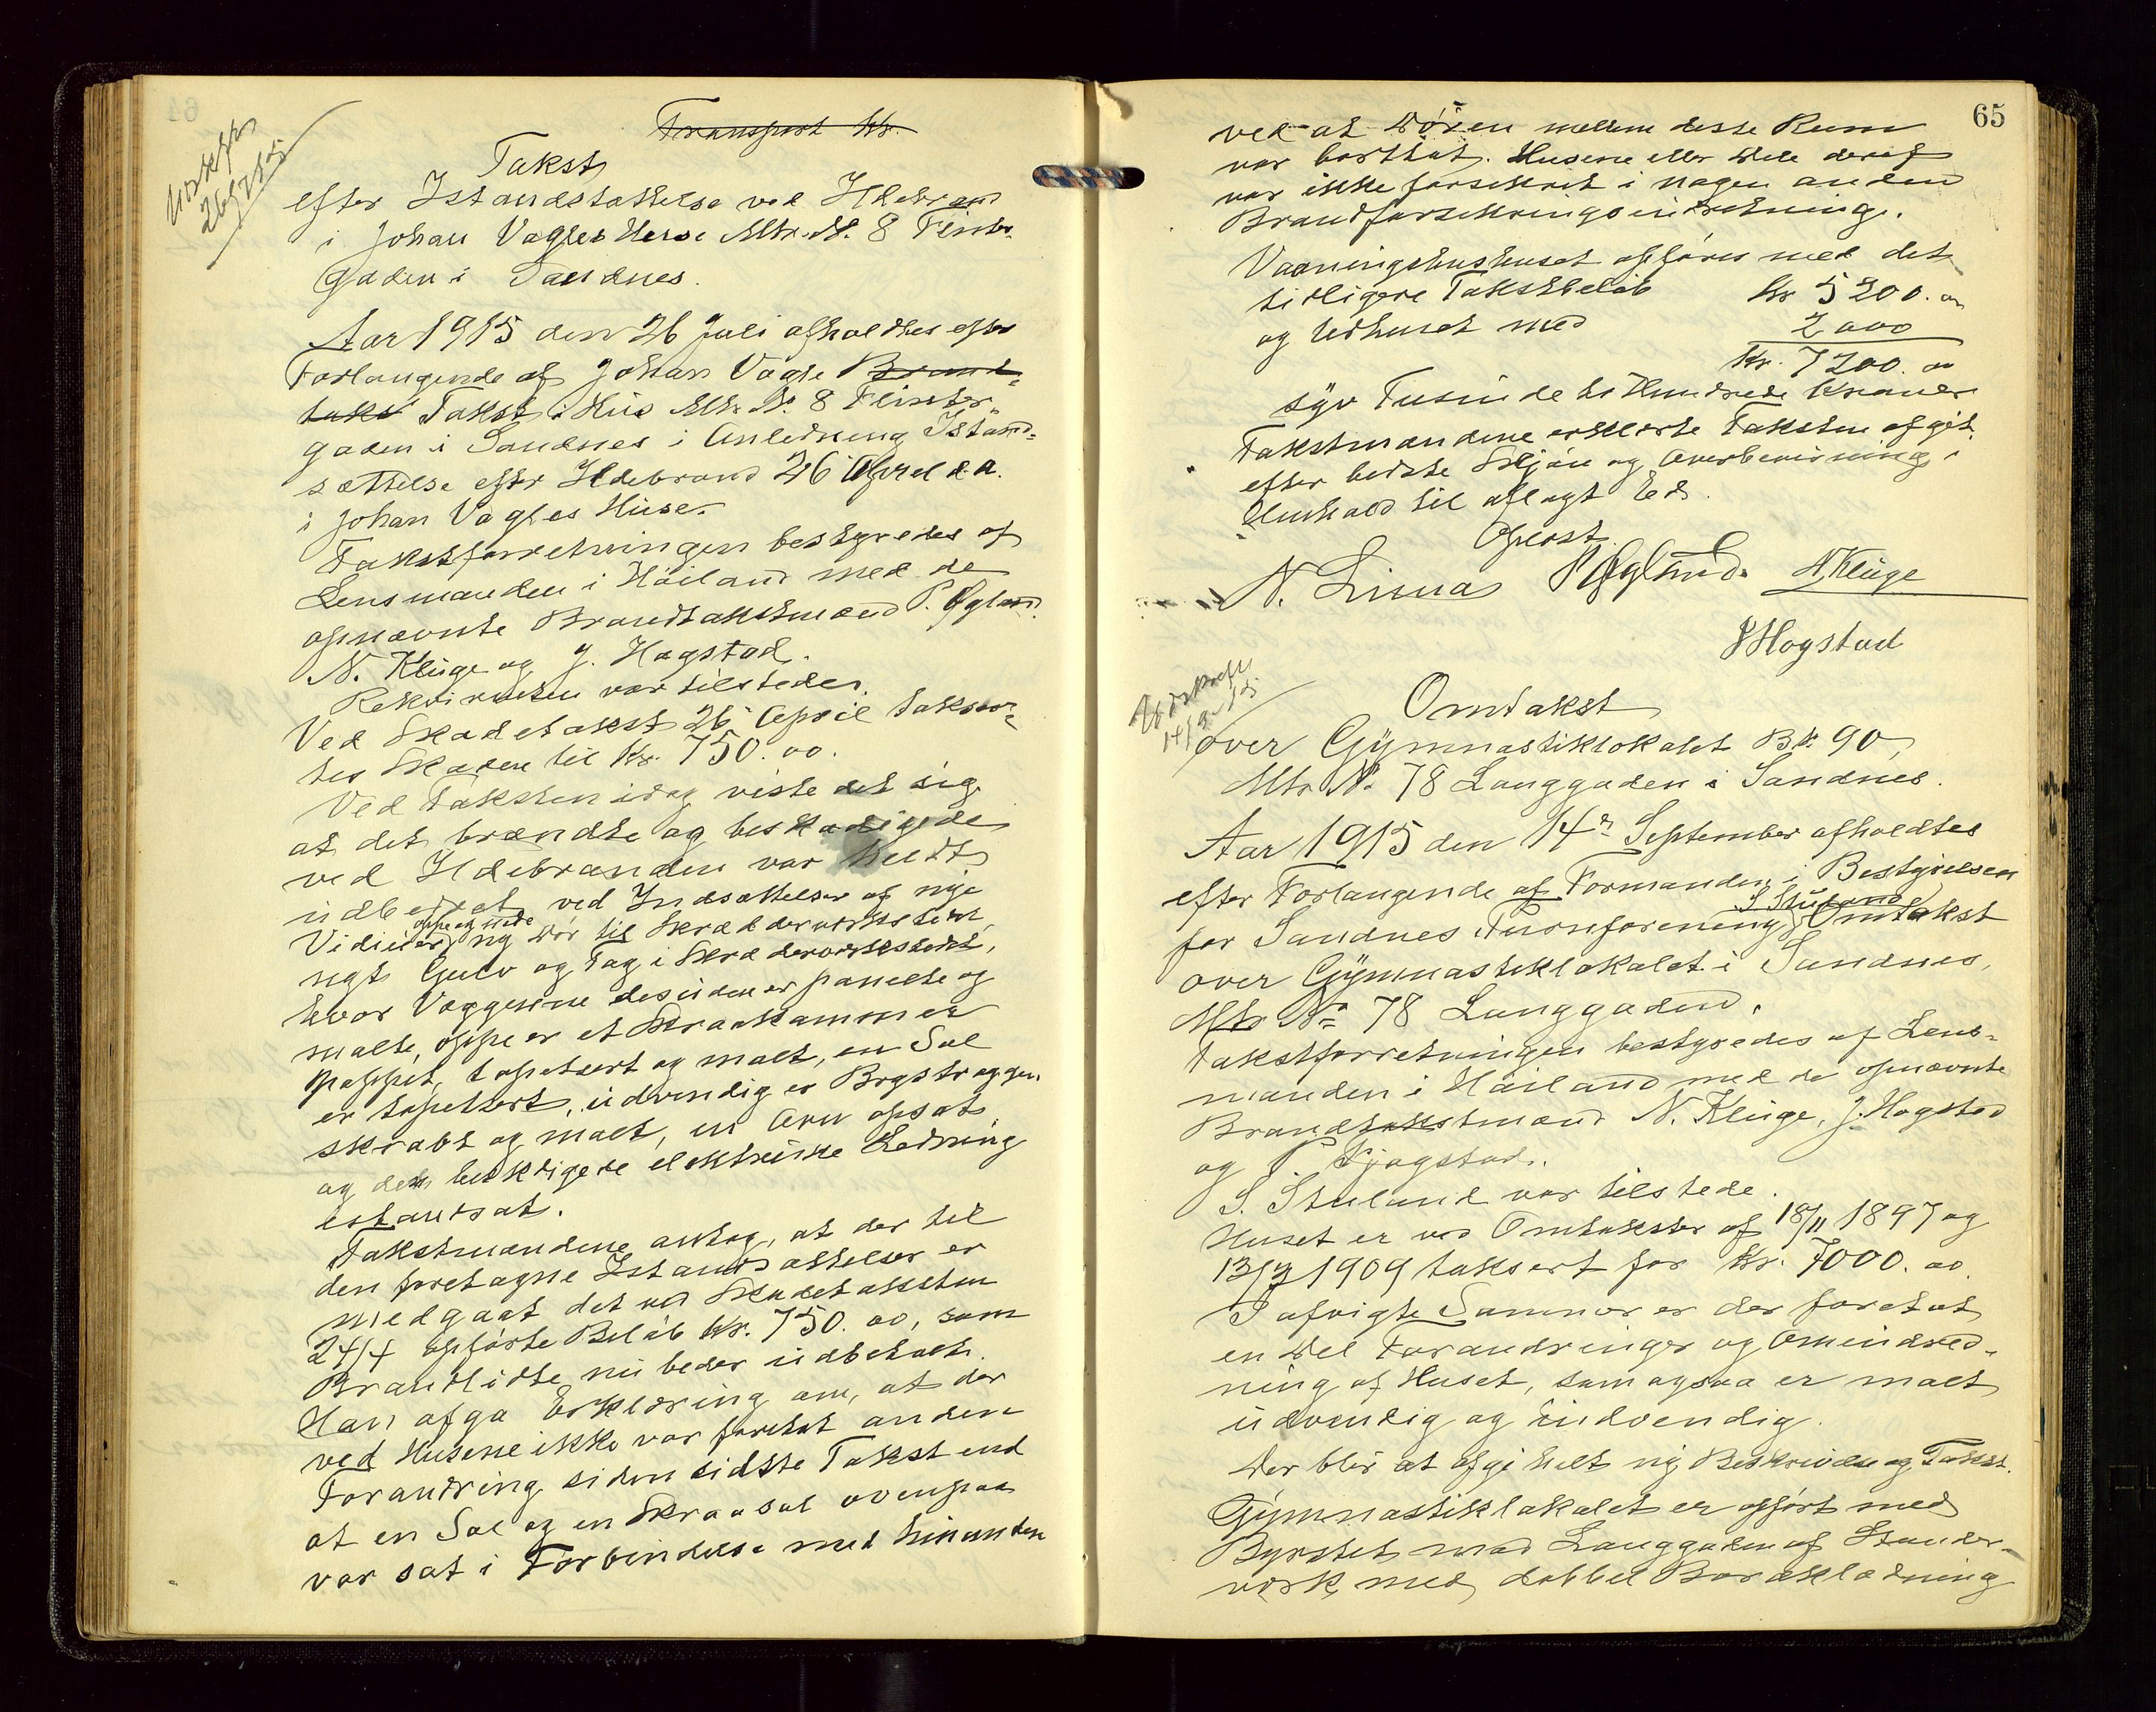 Transport Kr.
Takst
efter Istandsættelse ved Ildebrand
i Johan Vagles Huse Mtr. N. 8 Flinter-
gaden i Sandnes.
Aar 1915 den 26 Juli afholdtes efter
Forlangende af Johan Vagle Brand-
takst Takst i Hus Mtr. N. 8 Flinter-
gaden i Sandnes i Anledning Istand-
sættelse efter Ildebrand 26 April d. a.
i Johan Vagles Huse.
Takstforretningen bestyredes af
Lensmanden i Höiland med de
opnævnte Brandtakstmænd P. Øgland
N. Kluge og J. Hogstad.
Rekvirenten var tilstede.
Ved Skadetakst 26 April takser-
tes Skaden til Kr. 750.00.
Ved Taksten idag viste det sig
at det brændte og beskadigede
ved Ildebranden var heldt
udbedret ved Indsættelser af nye
Vidiier oppe og nede ny Dör til Skrædderverksted,
nyt Gulv og Tag i Skrædderverkstedet,
hvor Væggerne desuden er panelte og
malte, oppe er et Skraakammer
pappet, tapetsert og malt, en Sal
er tapetsert, udvendig er Brystvæggen
skrabt og malt, en Ovn opsat
og den beskdigede elektriske Ledning
istandsat.
Takstmændene antog, at der til
den foretagne Istandsættelser er
medgaat det ved Skadetaksten
24/4 opførte Beløb Kr. 750.00, som
Brandlidte nu beder udbetalt.
Han afga Erklæring om, at der
ved Husene ikke var foretat anden
Forandring siden sidste Takst end
at en Sal og en Skraasal ovenpaa
var sat i Forbindelse med hinanden
65
ved at Døren mellem disse Rum
var borttat. Husene eller Dele deraf
var ikke forsikret i nogen anden
Brandforsikringsindretning.
Vaaningshushuset opføres med det
tidligere Takstbeløb Kr 5200.00
og Udhuset med 2000
Kr. 7200.00
syv Tusinde to Hundrede Kroner
Takstmændene erklærte Taksten afgit
efter bedste Skjøn og Overbevisning i
Henhold til aflagt Ed.
Oplæst.
N. Limas P Øglænd. N. Kluge
J Hogstad
Udskrift
14/9-15.
Omtakst
over Gymnastiklokalet B. N. 90,
Mtr. N. 78 Langgaden i Sandnes.
Aar 1915 den 14de September afholdtes
efter Forlangende af Formanden i Bestyrelsen
for Sandnes Turnforening S Stuland Omtakst
over Gymnastiklokalet i Sandnes,
Mtr No 78 Langgaden.
Takstforretningen bestyredes af Lens-
manden i Höiland med de opnævnte
Brandtakstmænd N. Kluge, J. Hogstad
og P. Tjøgstad.
S. Stuland var tilstede.
Huset er ved Omtakster af 18/11 1897 og
13/3 1909 taksert for Kr. 7000.00.
I afvigte Sommer er der foretat
en Del Forandringer og Omindred-
ning af Huset, som ogsaa er malt
udvendig og indvendig.
Der blir at afgi helt ny Beskrivelse og Takst.
Gymnastiklokalet er opført med
Brystet mod Langgaden af Stender-
verk med dobbel Bordklædning